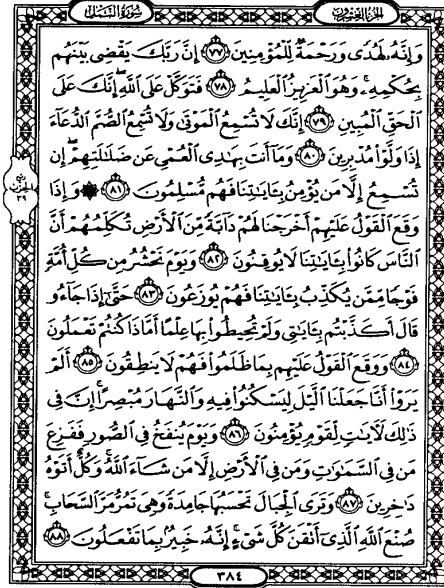 الجزء العشرون
سورة النمل
وَإِنَّهُۥ لَهُدًى وَرَحْمَةٌ لِّلْمُؤْمِنِينَ ٧٧ إِنَّ رَبَّكَ يَقْضِى بَيْنَهُم
بِحُكْمِهِۦ ۚ وَهُوَ ٱلْعَزِيزُ ٱلْعَلِيمُ ٧٨ فَتَوَكَّلْ عَلَى ٱللَّهِ ۖ إِنَّكَ عَلَى
ٱلْحَقِّ ٱلْمُبِينِ ٧٩ إِنَّكَ لَا تُسْمِعُ ٱلْمَوْتَىٰ وَلَا تُسْمِعُ ٱلصُّمَّ ٱلدُّعَآءَ
إِذَا وَلَّوْا۟ مُدْبِرِينَ ٨٠ وَمَآ أَنتَ بِهَٰدِى ٱلْعُمْىِ عَن ضَلَٰلَتِهِمْ ۖ إِن
تُسْمِعُ إِلَّا مَن يُؤْمِنُ بِـَٔايَٰتِنَا فَهُم مُّسْلِمُونَ ٨١ ۞ وَإِذَا
وَقَعَ ٱلْقَوْلُ عَلَيْهِمْ أَخْرَجْنَا لَهُمْ دَآبَّةً مِّنَ ٱلْأَرْضِ تُكَلِّمُهُمْ أَنَّ
ٱلنَّاسَ كَانُوا۟ بِـَٔايَٰتِنَا لَا يُوقِنُونَ ٨٢ وَيَوْمَ نَحْشُرُ مِن كُلِّ أُمَّةٍ
فَوْجًا مِّمَّن يُكَذِّبُ بِـَٔايَٰتِنَا فَهُمْ يُوزَعُونَ ٨٣ حَتَّىٰٓ إِذَا جَآءُو
قَالَ أَكَذَّبْتُم بِـَٔايَٰتِى وَلَمْ تُحِيطُوا۟ بِهَا عِلْمًا أَمَّاذَا كُنتُمْ تَعْمَلُونَ
٨٤ وَوَقَعَ ٱلْقَوْلُ عَلَيْهِم بِمَا ظَلَمُوا۟ فَهُمْ لَا يَنطِقُونَ ٨٥ أَلَمْ
يَرَوْا۟ أَنَّا جَعَلْنَا ٱلَّيْلَ لِيَسْكُنُوا۟ فِيهِ وَٱلنَّهَارَ مُبْصِرًا ۚ إِنَّ فِى
ذَٰلِكَ لَـَٔايَٰتٍ لِّقَوْمٍ يُؤْمِنُونَ ٨٦ وَيَوْمَ يُنفَخُ فِى ٱلصُّورِ فَفَزِعَ
مَن فِى ٱلسَّمَٰوَٰتِ وَمَن فِى ٱلْأَرْضِ إِلَّا مَن شَآءَ ٱللَّهُ ۚ وَكُلٌّ أَتَوْهُ
دَٰخِرِينَ ٨٧ وَتَرَى ٱلْجِبَالَ تَحْسَبُهَا جَامِدَةً وَهِىَ تَمُرُّ مَرَّ ٱلسَّحَابِ ۚ
صُنْعَ ٱللَّهِ ٱلَّذِىٓ أَتْقَنَ كُلَّ شَىْءٍ ۚ إِنَّهُۥ خَبِيرٌۢ بِمَا تَفْعَلُونَ ٨٨
الحزب
٣٩
٣٨٤